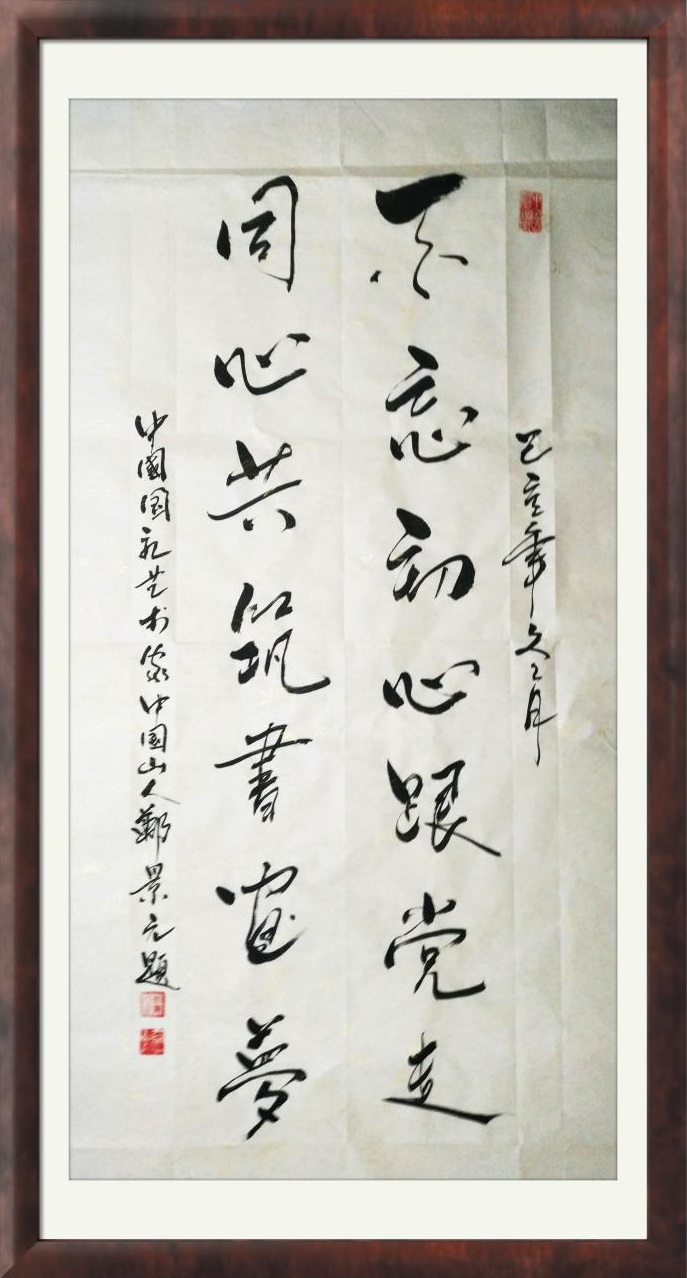 己亥年月
不忘初心跟党走
同心共筑書画夢
中國国礼艺术家中国山人鄭景元題